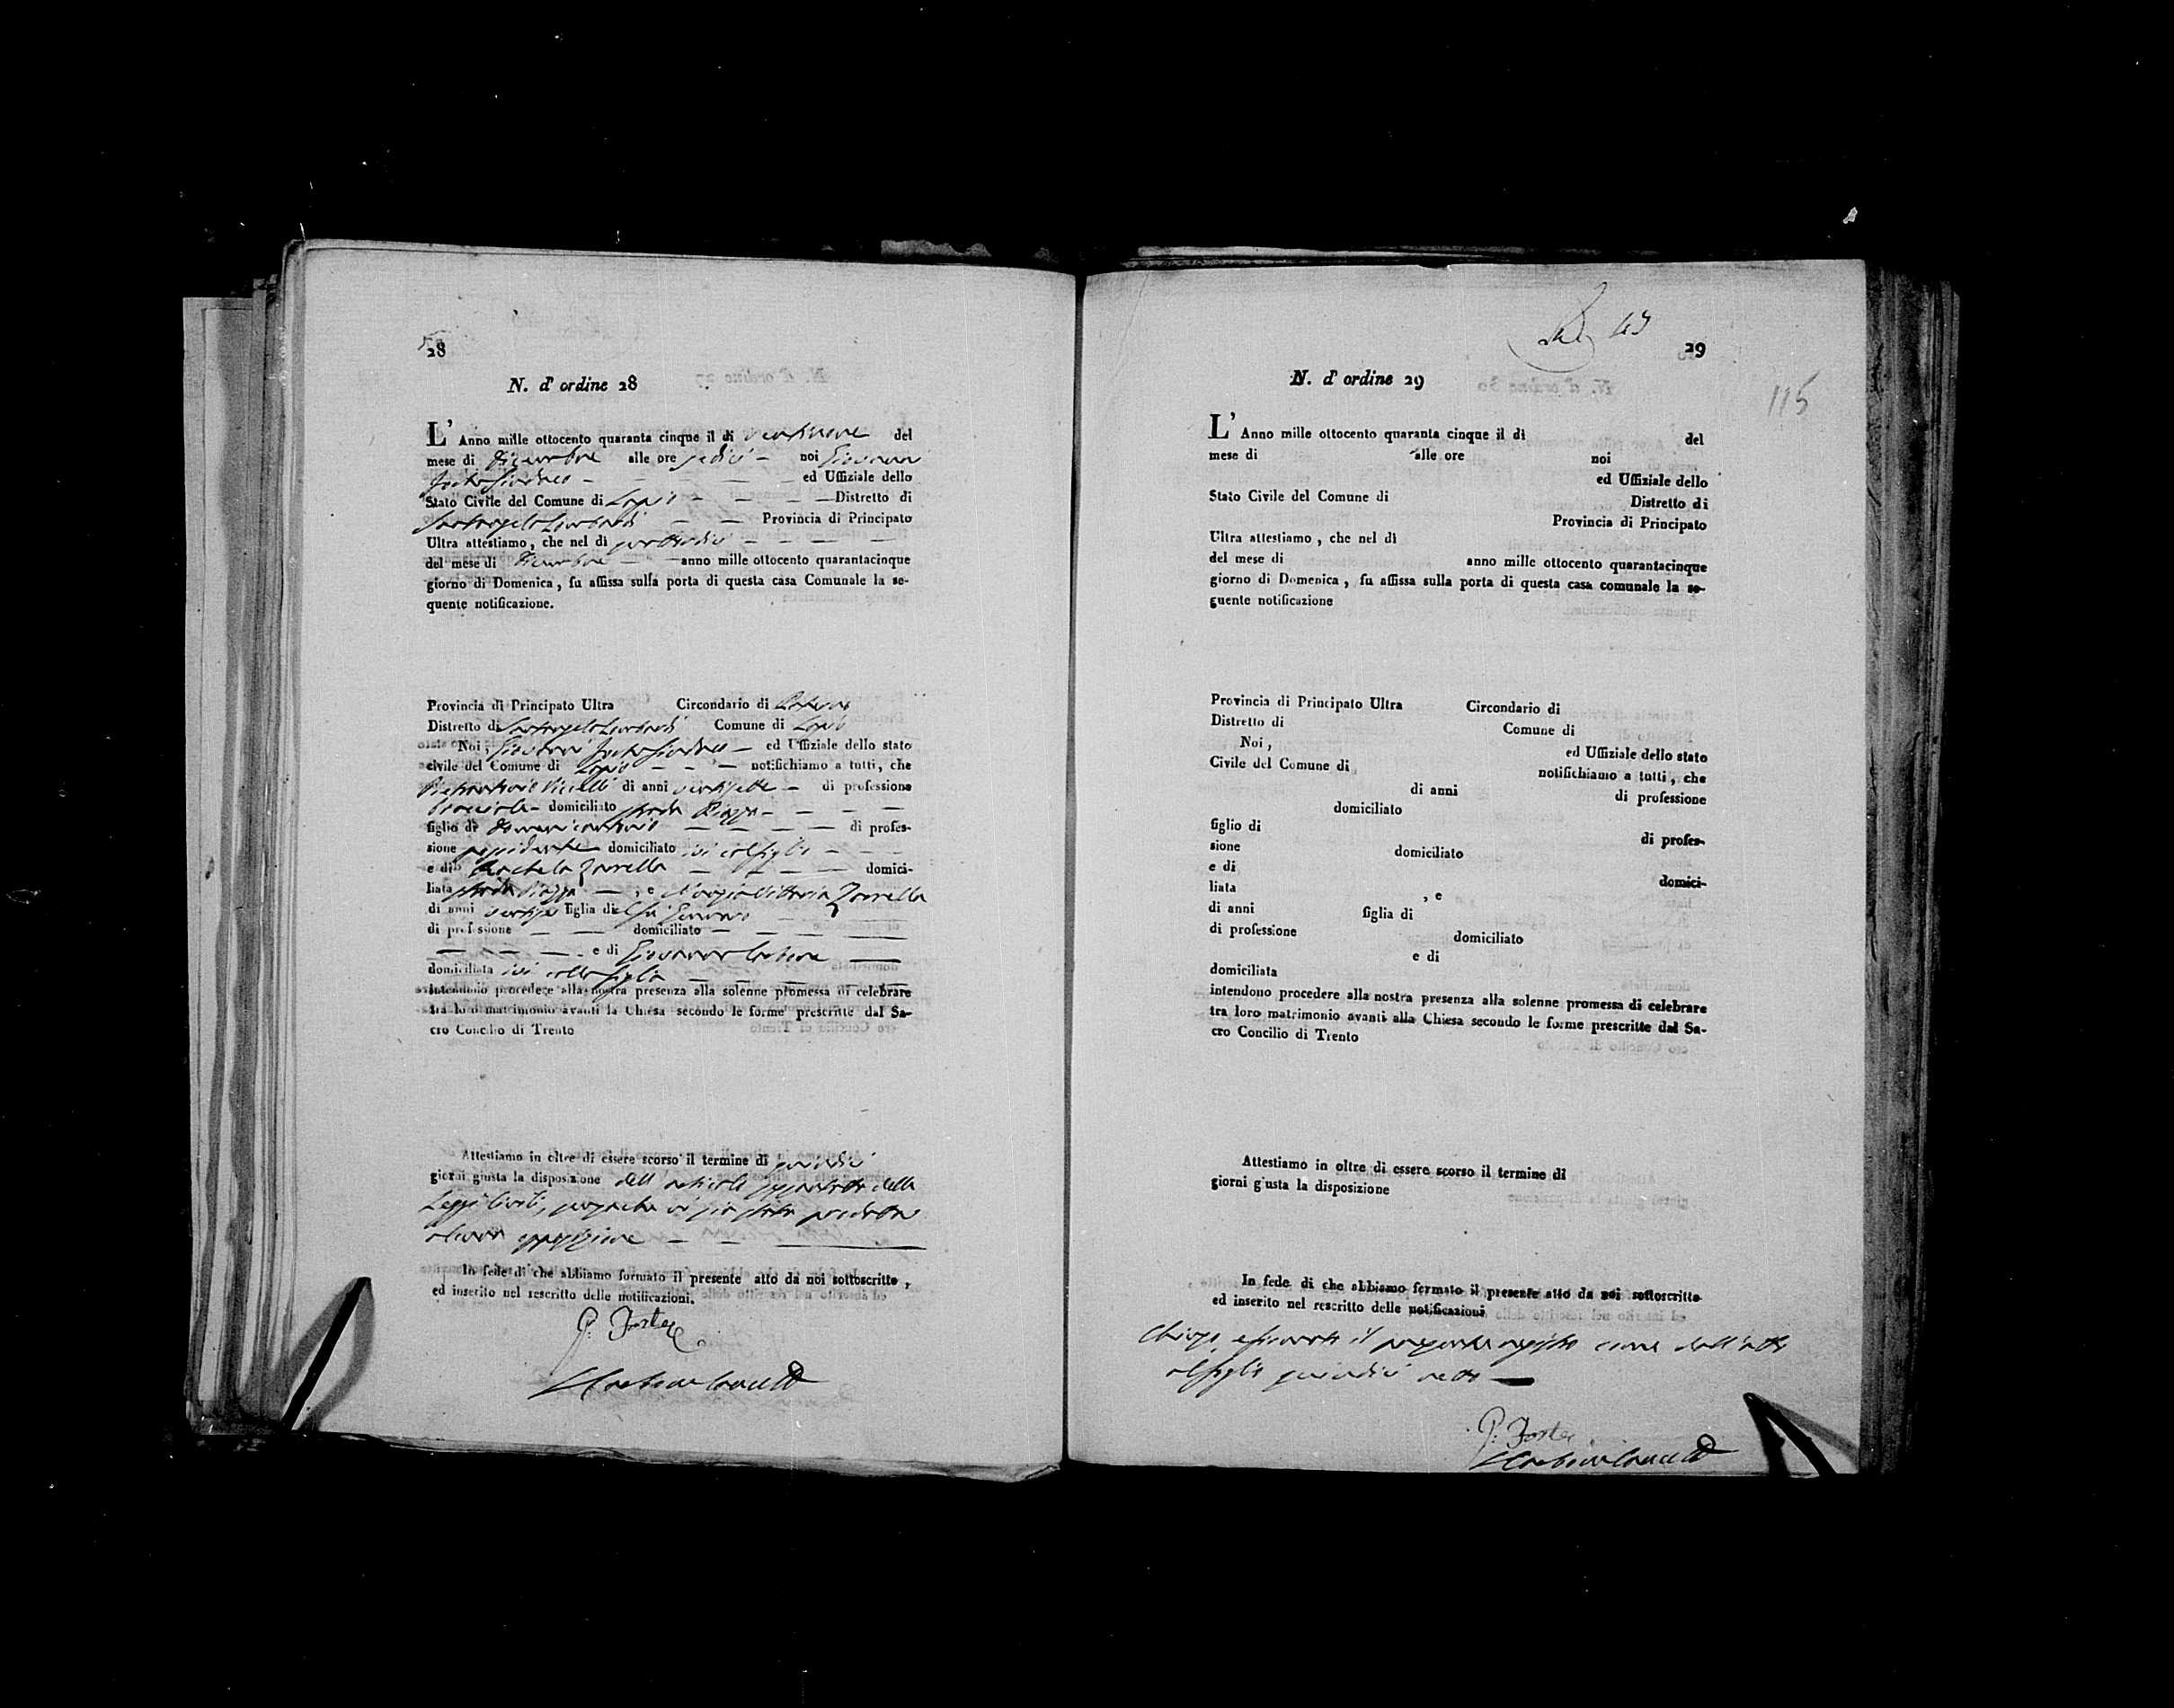 28
N. d' ordine 28
L' Anno mille ottocento quaranta cinque il dì ventinove del
mese di Dicembre alle ore sedici noi Giovanni
Forte Sindaco ed Uffiziale dello
Stato Civile del Comune di Lapio Distretto di
Santangelo Lombardi Provincia di Principato
Ultra attestiamo, che nel dì quattordici
del mese di Dicembre anno mille ottocento quarantacinque
giorno di Domenica, fu affissa sulla porta di questa casa Comunale la se-
quente notificazione.
Provincia di Principato Ultra Circondario di
Distretto di Santangelo Lombardi Comune di Lapio
Noi, Giovanni Forte Sindaco ed Uffiziale dello stato
civile del Comune di Lapio notifichiamo a tutti, che
di anni ventisette di professione
bracciale domiciliato strada Piazza
figlio di Domenicantonio di profes-
sione possidente domiciliato ivi col figlio
e di Rachela Zarrella domici-
liata strada Piazza, e Mariavittoria Zarrella
di anni figlia di Gennaro
di professione domiciliato
e di Giovanna Carbone
domiciliata ivi colla figlia
intendono procedere alla nostra presenza alla solenne promessa di celebrare
tra loro matrimonio avanti la Chiesa secondo le forme prescritte dal Sa-
cro Concilio di Trento
Attestiamo in oltre di essere scorso il termine di quindici
giorni giusta la disposizione dell'articolo della
Leggi Civili, senza che vi sia stata prodotta
alcuna opposizione
In fede di che abbiamo formato il presente atto da noi sottoscritto,
ed inserito nel rescritto delle notificazioni.
G: Forte
29
115
N. d' ordine 29
L' Anno mille ottocento quaranta cinque il dì del
mese di alle ore noi
ed Uffiziale dello
Stato Civile del Comune di Distretto di
Provincia di Principato
Ultra attestiamo, che nel dì
del mese di anno mille ottocento quarantacinque
giorno di Domenica, fu affissa sulla porta di questa casa comunale la se-
guente notificazione
Provincia di Principato Ultra Circondario di
Distretto di Comune di
Noi, ed Uffiziale dello stato
Civile del Comune di notifichiamo a tutti, che
di anni di professione
domiciliato
figlio di di profes-
sione domiciliato
e di domici-
liata , e
di anni figlia di
di professione domiciliato
e di
domiciliata
intendono procedere alla nostra presenza alla solenne promessa di celebrare
tra loro matrimonio avanti alla Chiesa secondo le forme prescritte dal Sa-
cro Concilio di Trento
Attestiamo in oltre di essere scorso il termine di
giorni giusta la disposizione
In fede di che abbiamo formato il presente atto da noi sottoscritto
ed inserito nel rescritto delle notificazioni
il presente registro come dall'atto
al foglio quindici
G: Forte